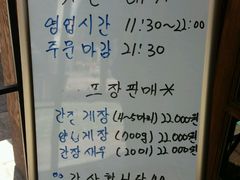 영업시간 11:30~22:00
주문마감 21:30
포장판매
간장게장 (4~5마리) 22.000원
양념게장 (700g) 22.000원
간장새우 (20미) 22.000원
감사합니다